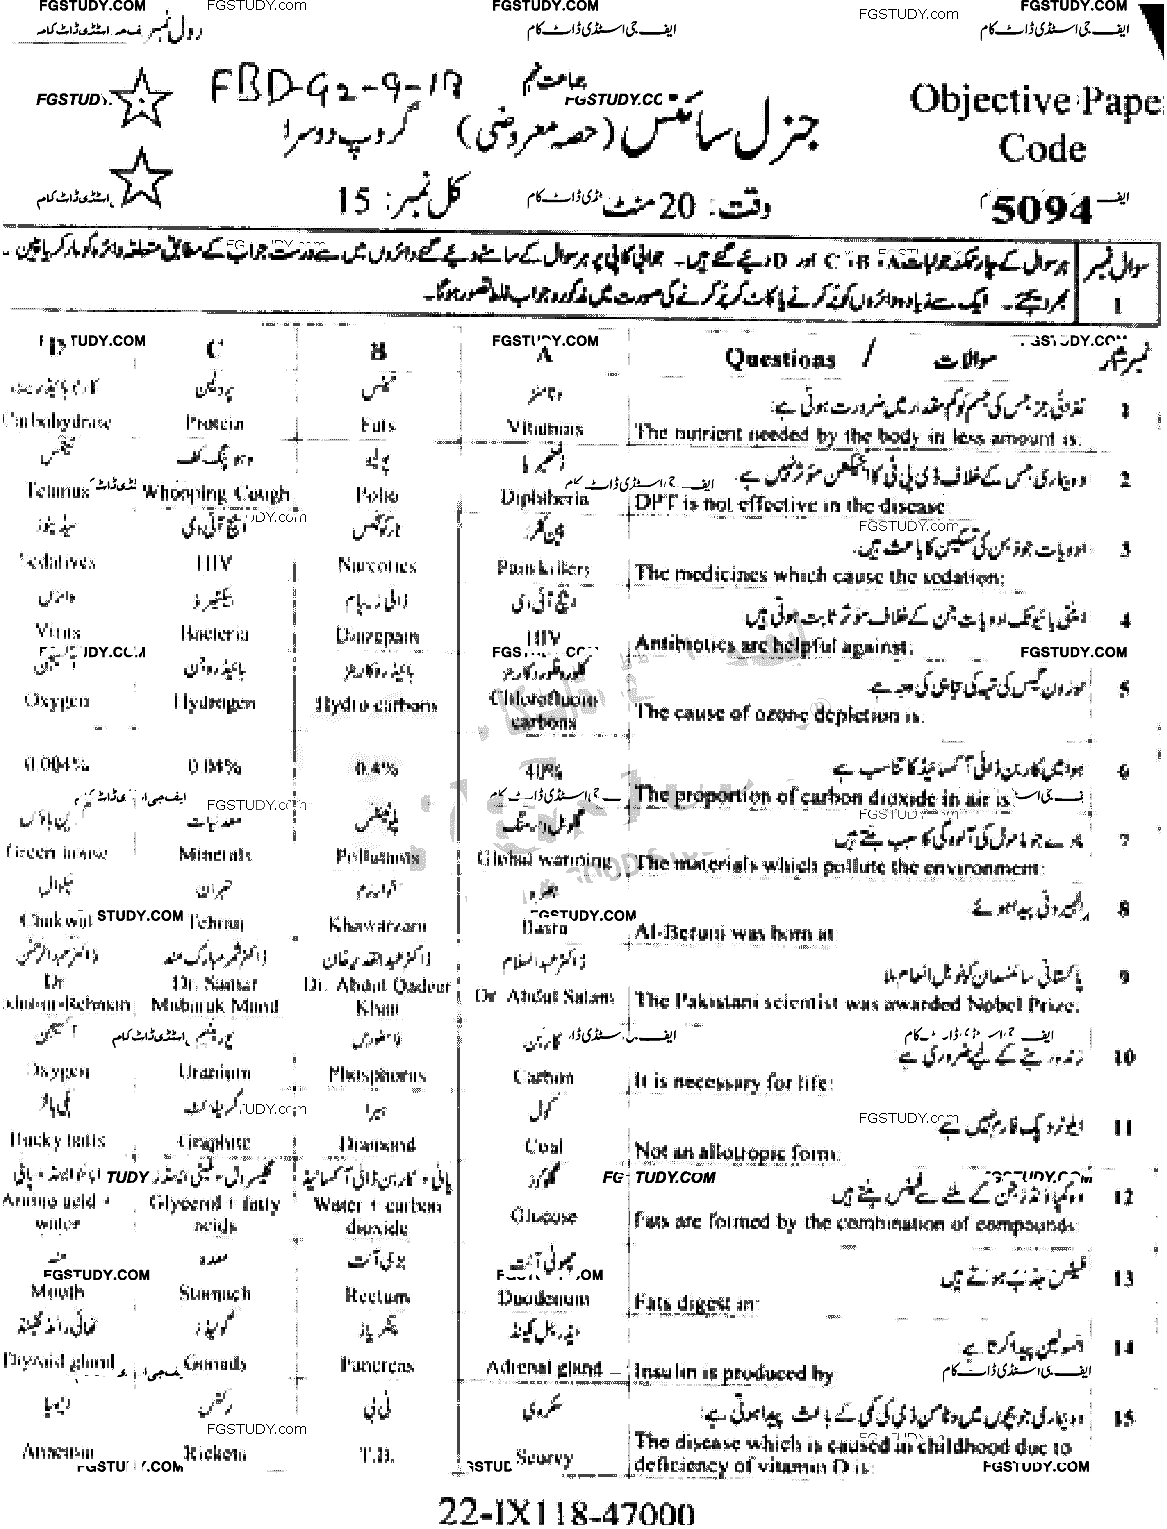 FGSTUDY.COM FGSTUDY.com FGSTUDY.COM FGSTUDY.com FGSTUDY.COM
رول نمبر ایف جی اسٹڈی ڈاٹ کام ایف جی اسٹڈی ڈاٹ کام
FBD-G2-9-18 جماعت نہم
FGSTUDY.COM Objective Paper
جنرل سائنس (حصہ معروضی) گروپ دوسرا
Code
وقت: 20 منٹ کل نمبر: 15
5094
سوال نمبر 1
ہر سوال کے چار ممکنہ جوابات A، B، C اور D دئیے گئے ہیں۔ جوابی کاپی پر ہر سوال کے سامنے دیئے گئے دائروں میں سے درست جواب کے مطابق متعلقہ دائرہ کو مارکر یا پین سے
بھر دیجئے۔ ایک سے زیادہ دائروں کو پُر کرنے یا کاٹ کر پُر کرنے کی صورت میں مذکورہ جواب غلط تصور ہوگا۔
D C B A Questions / سوالات نمبر شمار
کاربوہائیڈریٹ پروٹین فیٹس وٹامنز
غذائی جز جس کی جسم کو کم مقدار میں ضرورت ہوتی ہے: 1
Carbohydrate Protein Fats Vitamins The nutrient needed by the body in less amount is:
ٹیٹنس وہوپنگ کف پولیو
وہ بیماری جس کے خلاف ڈی پی ٹی کا انجکشن مؤثر نہیں ہے۔ 2
Tetanus Whooping Cough Polio Diphtheria DPT is not effective in the disease
ایچ آئی وی نارکوٹکس پین کلرز
ادویات جو ذہن کی تسکین کا باعث ہیں۔ 3
Sedatives HIV Narcotics Painkillers The medicines which cause the sedation:
وائرس بیکٹیریا ڈائی زیپام ایچ آئی وی
اینٹی بائیوٹک ادویات جن کے خلاف مؤثر ثابت ہوتی ہیں 4
Virus Bacteria Diazepam HIV Antibiotics are helpful against:
آکسیجن ہائیڈروجن ہائیڈروکاربنز کلوروفلوروکاربنز
اوزون گیس کی تہہ کی تباہی کی وجہ ہے۔ 5
Oxygen Hydrogen Hydro carbons Chlorofluoro carbons The cause of ozone depletion is:
ہوا میں کاربن ڈائی آکسائیڈ کا تناسب ہے 6
0.004% 0.04% 0.4% 40% The proportion of carbon dioxide in air is
گرین ہاؤس معدنیات پلوٹینٹس گلوبل وارمنگ
مادے جو ماحول کی آلودگی کا سبب بنتے ہیں: 7
Green house Minerals Pollutants Global warming The materials which pollute the environment:
تہران خوارزم بصرہ
البیرونی پیدا ہوئے 8
Tehran Khawarzam Basra Al-Beruni was born at
ڈاکٹر عطاء الرحمٰن ڈاکٹر ثمر مبارک مند ڈاکٹر عبدالقدیر خان ڈاکٹر عبدالسلام
پاکستانی سائنسدان کو نوبل انعام ملا 9
Dr. Dr. Samar Mubarak Mund Dr. Abdul Qadeer Khan Dr. Abdul Salam The Pakistani scientist was awarded Nobel Prize:
آکسیجن یورینیم فاسفورس کاربن
زندہ رہنے کے لیے ضروری ہے 10
Oxygen Uranium Phosphorus Carbon It is necessary for life:
بکی بالز گریفائٹ ہیرا کول
ایلوٹروپک فارم نہیں ہے 11
Bucky balls Graphite Diamond Coal Not an allotropic form:
امائنو ایسڈ + پانی گلیسرول + فیٹی ایسڈز پانی + کاربن ڈائی آکسائیڈ گلوکوز
وہ کمپاؤنڈز جن کے ملنے سے فیٹس بنتے ہیں 12
Amino acid + water Glycerol + fatty acids Water + carbon dioxide Glucose Fats are formed by the combination of compounds:
منہ معدہ بڑی آنت چھوٹی آنت
فیٹس جذب ہوتے ہیں 13
Mouth Stomach Rectum Duodenum Fats digest in:
تھائی رائڈ گلینڈ گونیڈز پنکریاز ایڈرینل گلینڈ
انسولین پیدا کرتا ہے 14
Thyroid gland Gonads Pancreas Adrenal gland Insulin is produced by
انیمیا رکٹس ٹی بی سکروی
وہ بیماری جو بچوں میں وٹامن ڈی کی کمی کے باعث پیدا ہوتی ہے: 15
Anaemia Rickets T.B. Scurvy The disease which is caused in childhood due to
deficiency of vitamin D is:
FGSTUDY.COM
22-IX118-47000